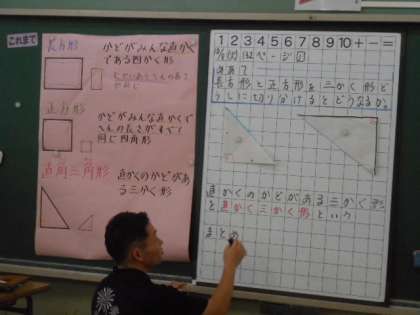 これまで
長方形
かどがみんな直かく
である四かく形
正方形
かどがみんな直かくで
へんの長さがすべて
同じ四角形
直角三角形
直かくのかどがあ
る三かく形
1 2 3 4 5 6 7 8 9 10 + - =
ページ
めあて
長方形と正方形を三かく形と
に切り分けるとどうなるか。
直かくのかどがある三かく形
を直かく三かく形という
まとめ